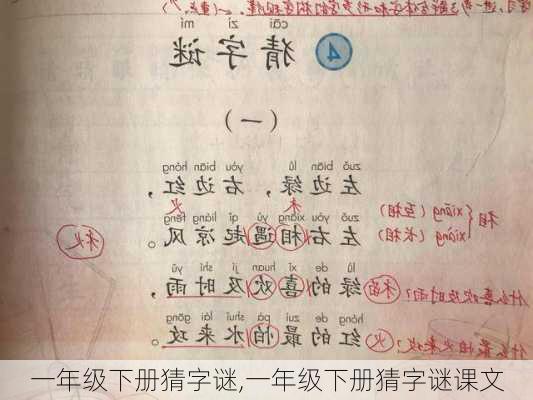 cāi zì mí
4 猜字谜
(一)
zuǒ biān lǜ yòu biān hóng
左边绿，右边红，
zuǒ yòu xiāng yù qǐ liáng fēng
左右相遇起凉风。
lǜ de xǐ huan jí shí yǔ
绿的喜欢及时雨，
hóng de zuì pà shuǐ lái gōng
红的最怕水来攻。
相 xiāng (互相)
xiàng (长相)
火
一年级下册猜字谜,一年级下册猜字谜课文